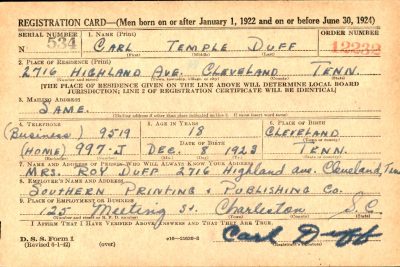 REGISTRATION CARD—(Men born on or after January 1, 1922 and on or before June 30, 1924)
SERIAL NUMBER 1. NAME (Print) ORDER NUMBER
N 534 CARL TEMPLE DUFF 12232
(First) (Middle) (Last)
2. PLACE OF RESIDENCE (Print)
2716 HIGHLAND AVE. CLEVELAND TENN.
(Number and street) (Town, township, village, or city) (County) (State)
[THE PLACE OF RESIDENCE GIVEN ON THE LINE ABOVE WILL DETERMINE LOCAL BOARD
JURISDICTION; LINE 2 OF REGISTRATION CERTIFICATE WILL BE IDENTICAL]
3. MAILING ADDRESS
SAME.
[Mailing address if other than place indicated on line 2. If same insert word same]
4. TELEPHONE 5. AGE IN YEARS 6. PLACE OF BIRTH
(Business) 9519 18 CLEVELAND
DATE OF BIRTH (Town or county)
(HOME) 997-J DEC. 8 1923 TENN.
(Exchange) (Number) (Mo.) (Day) (Yr.) (State or country)
7. NAME AND ADDRESS OF PERSON WHO WILL ALWAYS KNOW YOUR ADDRESS
MRS. ROY DUFF 2716 Highland ave. Cleveland, Tenn
8. EMPLOYER'S NAME AND ADDRESS
SOUTHERN PRINTING & PUBLISHING Co.
9. PLACE OF EMPLOYMENT OR BUSINESS
125 Meeting St. Charleston S.C.
(Number and street or R. F. D. number) (Town) (County) (State)
I AFFIRM THAT I HAVE VERIFIED ABOVE ANSWERS AND THAT THEY ARE TRUE.
D. S. S. Form 1
(Revised 6-1-42) (over) Carl Duff
(Registrant's signature)